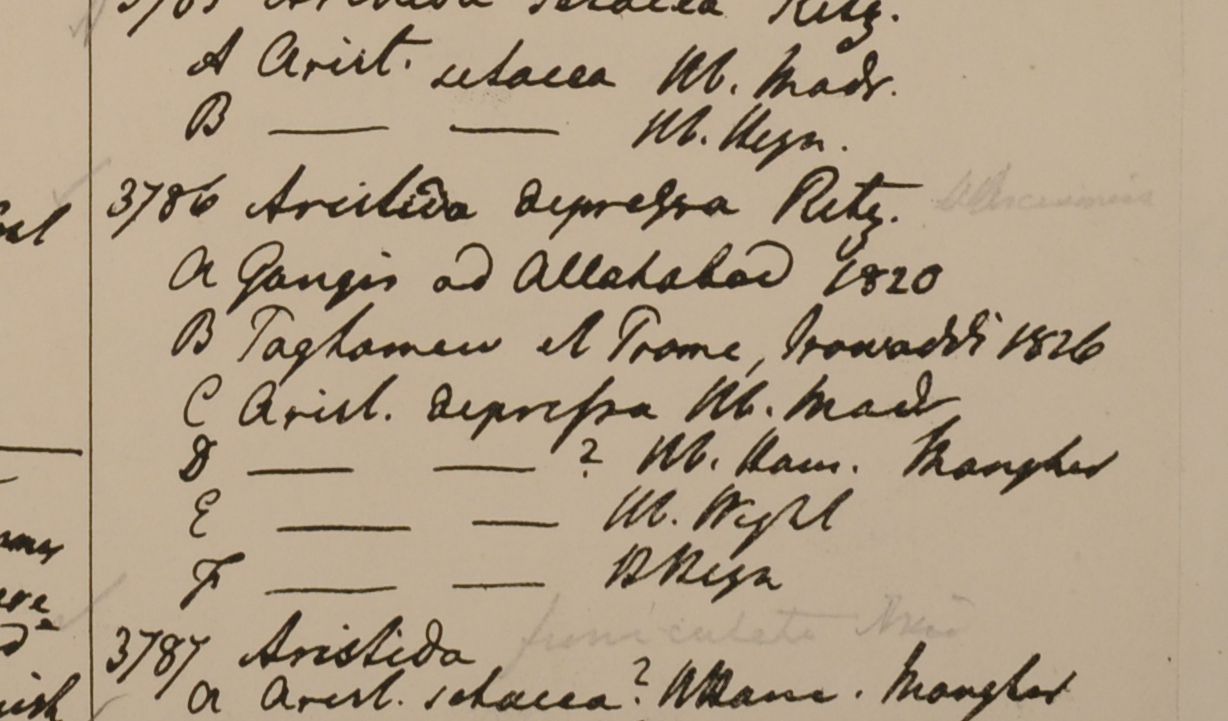 3785 Aristida setacea Retz.
A Arist. setacea Hb. Madr.
B — — Hb. Heyn.
3786 Aristida depressa Retz.
A Gangis ad Allahabad 1820
B Taghamew et Prome, Irawaddi 1826
C Arist. depressa Hb. Madr
D — — ? Hb. Ham. Mongher
E — — Hb. Wight
F — — HHeyn
3787 Aristida funiculata
a Arist. setacea? HHam. Mongher